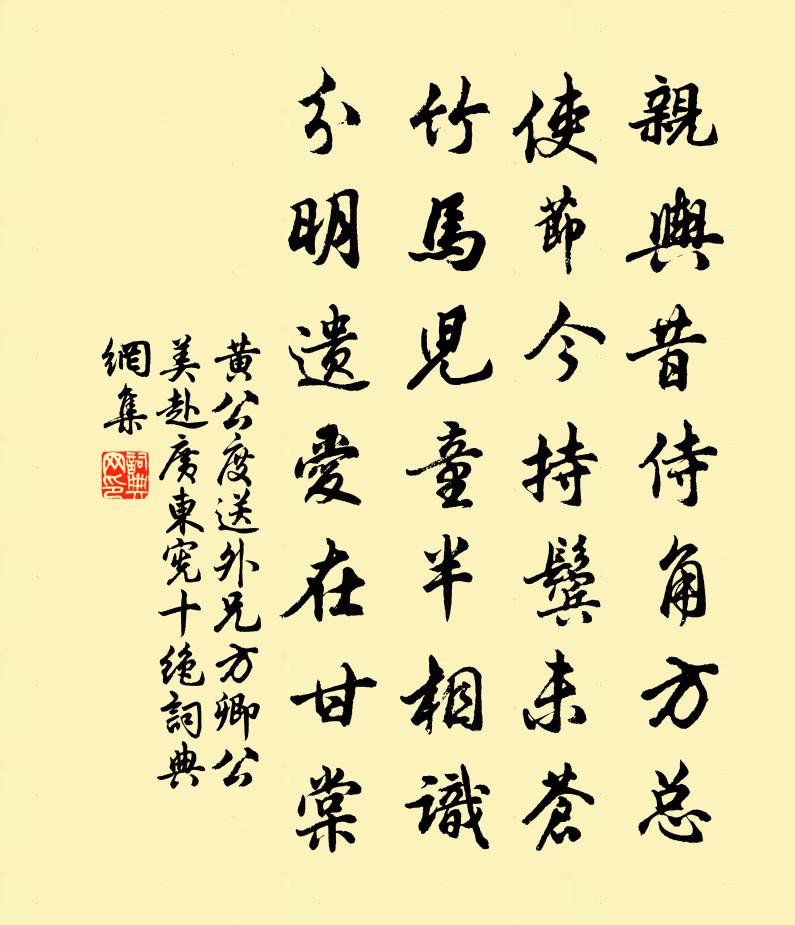 親輿昔侍角方总
使節今持鬓未蒼
竹馬児童半相識
分明遗愛在甘棠
黄公度送外兄方卿公
美赴廣東憲十绝詞典
網集
詞典网印